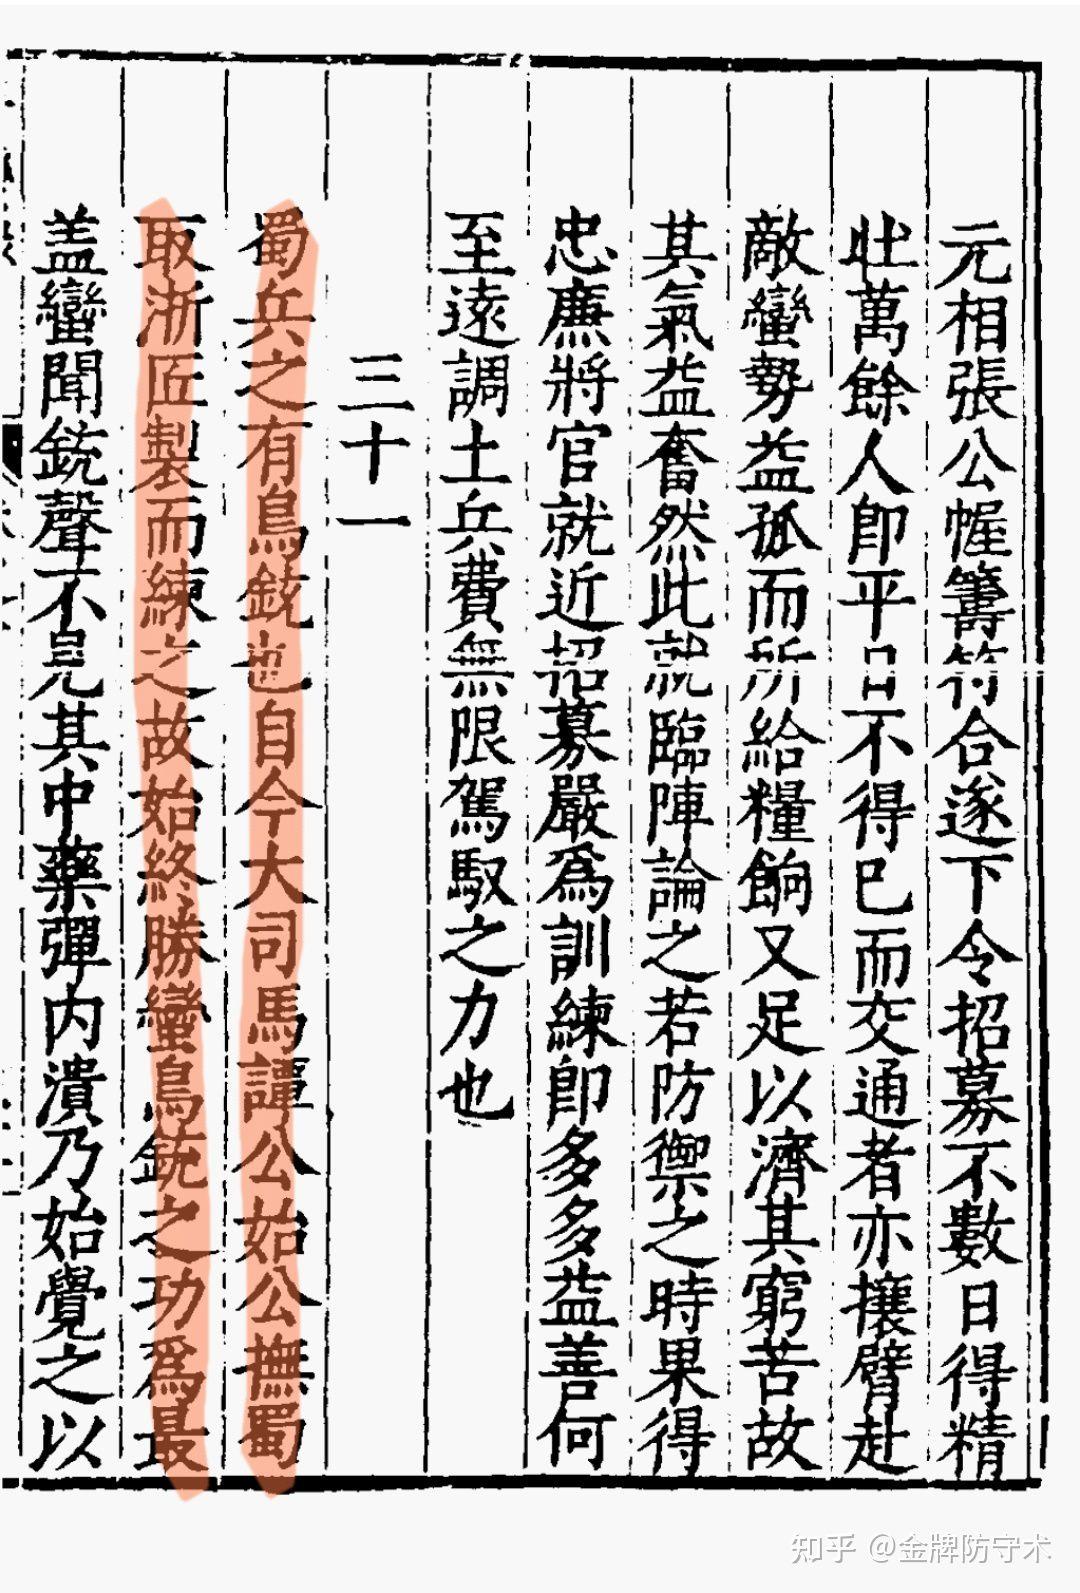 元相張公幄籌符合遂下令招募不數日得精
壯萬餘人卽平日不得已而交通者亦攘臂赴
敵蠻勢益孤而所給糧餉又足以濟其窮苦故
其氣益奮然此就臨陣論之若防禦之時果得
忠廉將官就近招募嚴爲訓練卽多多益善何
至遠調土兵費無限駕馭之力也
三十一
蜀兵之有鳥銃也自今大司馬譚公始公撫蜀
取浙匠製而練之故始終勝蠻鳥銃之功爲最
盖蠻聞銃聲不見其中藥彈内潰乃始覺之以
知乎 @金牌防守术